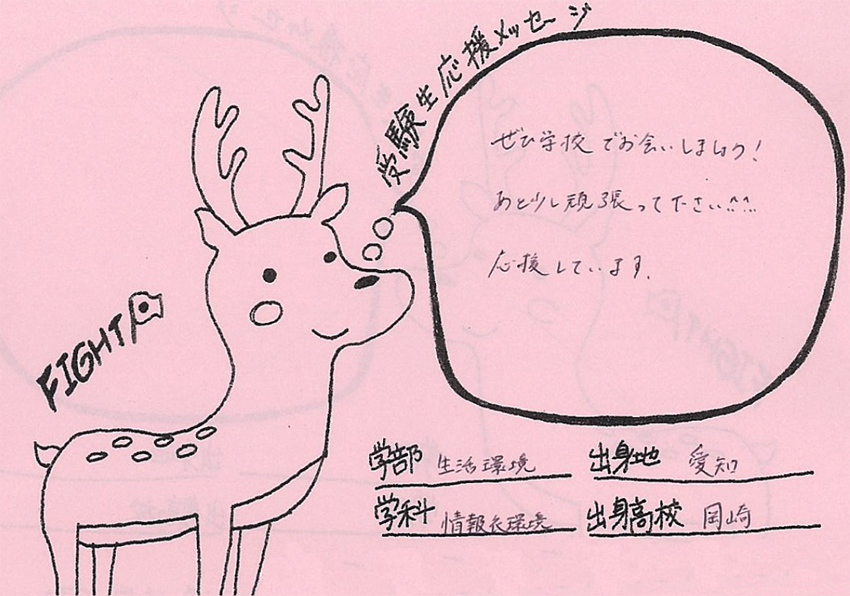 受験生応援メッセージ
ぜひ学校でお会いしましょう!
あと少し頑張って下さい^^
応援しています。
FIGHT
学部 生活環境
出身地 愛知
学科 情報衣環境
出身高校 岡崎